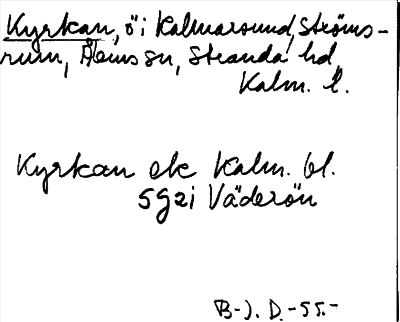 Kyrkan, ö i Kalmarsund, Ströms-
rum, Ålems sn, Stranda hd
Kalm. l.
Kyrkan ek Kalm. bl.
5g2i Väderön
B-J. D.-55.-